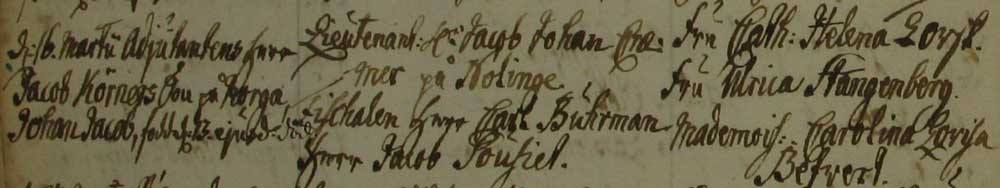 D: 6. Martii Adjutantens Herr
Jacob Körners Son på Korga
Johan Jacob, född d: 3 ejusd:
Lieutenant: Hr Jacob Johan Cræ-
mer på Nolinge
Fiskalen Herr Carl Buhrman
Herr Jacob
Fru Cath: Helena
Fru Ulrica Stangenberg.
Mademois: Carolina Lovisa